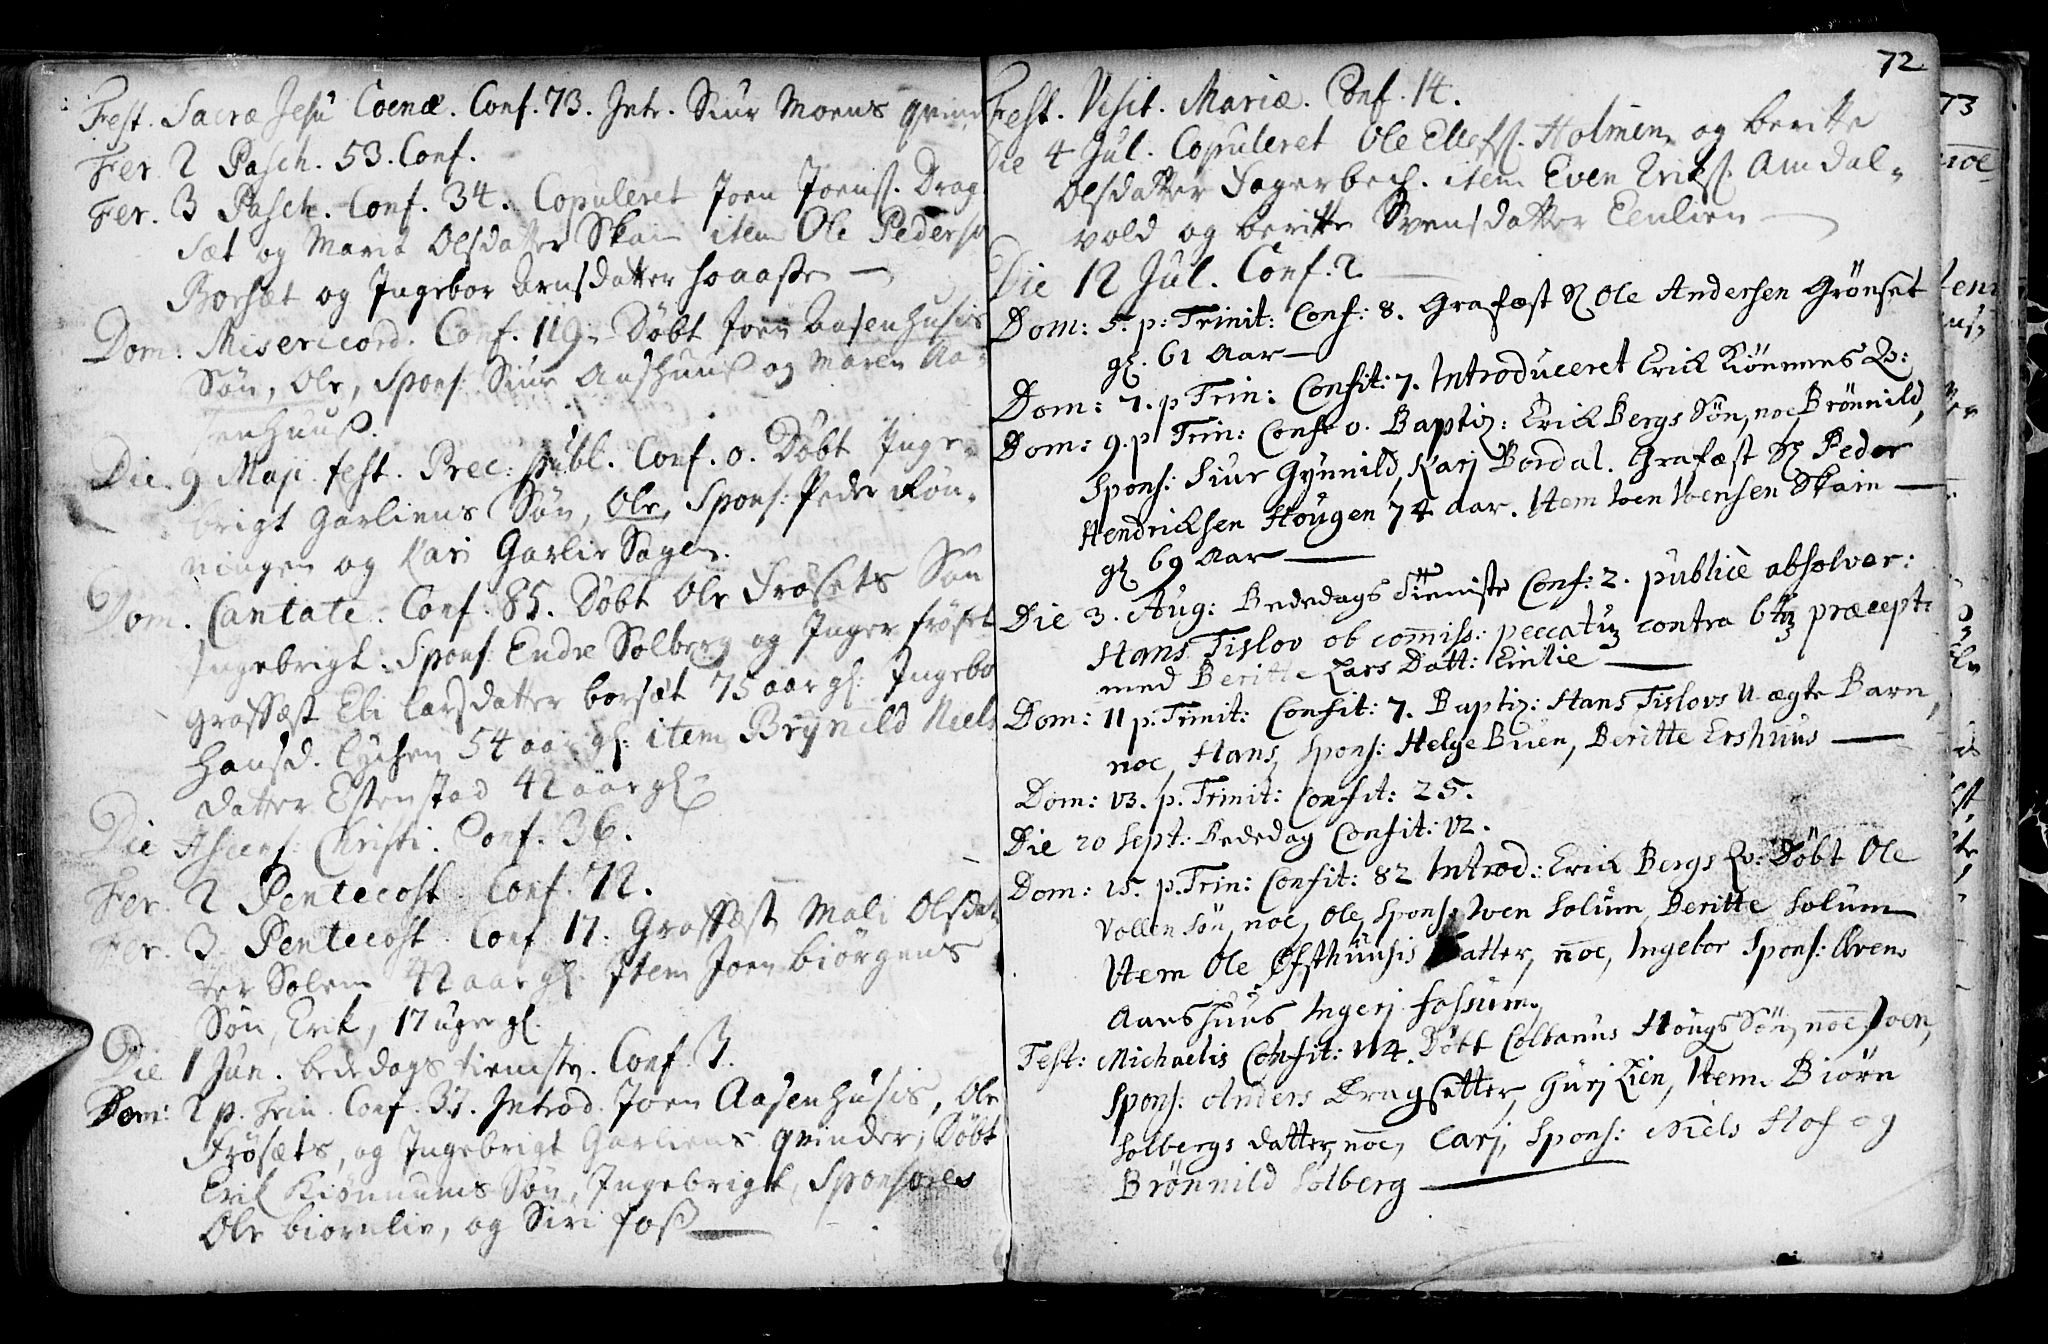 Fest. Sacræ Jesu Coenæ. Conf. 73. Intr. Siur Moens qvind
Fer. 2 Pasch. 53. Conf.
Fer. 3 Pasch. Conf. 34. Copuleret Joen Joens. Drag
sæt og Marit Olsdatter Skain item Ole Peders
Borsæt og Ingebor Arnsdatter
Dom. Misericord. Conf. 119. Døbt Joen Aasenhusis
Søn, Ole, Spons: Siur Aashuus og Maren Aa-
senhuus.
Die. 9 Maji fest. Prec: publ. Conf. 0. Døbt Inge-
brigt Garliens Søn, Ole, Spons: Peder Røn-
ningen og Kari Garlie Sagen.
Dom. Cantate. Conf. 85. Døbt Ole Frøsets Søn
Ingebrigt. Spons: Endre Solberg og Inger Frøset
Graffæst Eli Larsdatter borsæt 75 aar gl: Ingebo
Hansd. Lychen 54 aar gl: item Brynild Niels
datter Estenstad 42 aar gl
Die Ascens: Christi. Conf. 36.
Fer. 2 Pentecost. Conf. 72.
Fer. 3 Pentecost. Conf 17. Graffæst Mali Olsdat
ter Solem 42 aar gl. Item Joen biørgens
Søn, Erik, 17 uger gl.
Die 1 Jun. bededags tieniste. Conf. 3.
Dom: 2 p. Trin. Conf. 37. Introd. Joen Aasenhusis, Ole
Frøsæts, og Ingebrigt Garliens qvinder, Døbt
Erik Kiønnums Søn, Ingebrigt, Sponsores
Ole biørnlie, og Siri foss
72
Fest. Visit. Mariæ. Conf. 14.
Die 4 Jul. Copuleret Ole Ellefs. Holmen og beritte
Olsdatter Fagerbech. item Even Eriks. Amdal-
vold og beritte Svensdatter Eenlien
Die 12 Jul. Conf. 2
Dom: 5. p: Trinit: Conf: 8. Grafæst S Ole Andersen Grönset
gl. 61 Aar
Dom: 7. p Trin: Confit: 7. Introduceret Erick Kiönnens Qv:
Dom: 9. p Trin: Conf: 0. Baptiz: Erick Bergs Sön, noe Brönnild,
Spons: Siur Gynnild, Karj Bordal. Grafæst S Peder
Hendricksen Hougen 74 aar. Item Iven Ivensen Skain
gl 69 Aar
Die 3. Aug: Bededags Tieniste Conf: 2. publicè absolver:
Hans Tislov ob commiss: peccatu contra 6tu præcept:
med Beritte Lars Datt: Einlie
Dom: 11 p. Trinit: Confit: 7. Baptiz: Hans Tislovs U ægte Barn,
noe, Hans, Spons: Helge Buen, Beritte Ershuus
Dom: 13. p. Trinit: Confit: 25.
Die 20 Sept: Bededag Confit: 12.
Dom: 15. p. Trin: Confit: 82 Introd: Erick Bergs Qv: Döbt Ole
Vollen Sön, noe, Ole, Spons: Iven Solum, Beritte Solum
Item Ole Øfsthuusis Datter, noe, Ingebor Spons: Arens
Aarshuus Ingerj Fossum,
Fest: Michaelis Confit: 114. Döbt Colbanus Hougs Sön, noe Joen,
Spons: Anders Dragsetter, Gurj Lien, Item Biörn
Solbergs datter, noe, Carj, Spons: Niels Hof og
Brönnild Solberg
73
noe